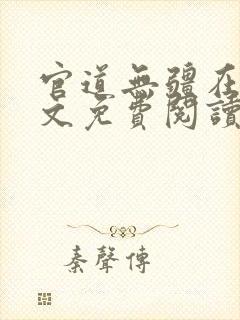 官道無疆在
文免費閱讀
秦聲傳